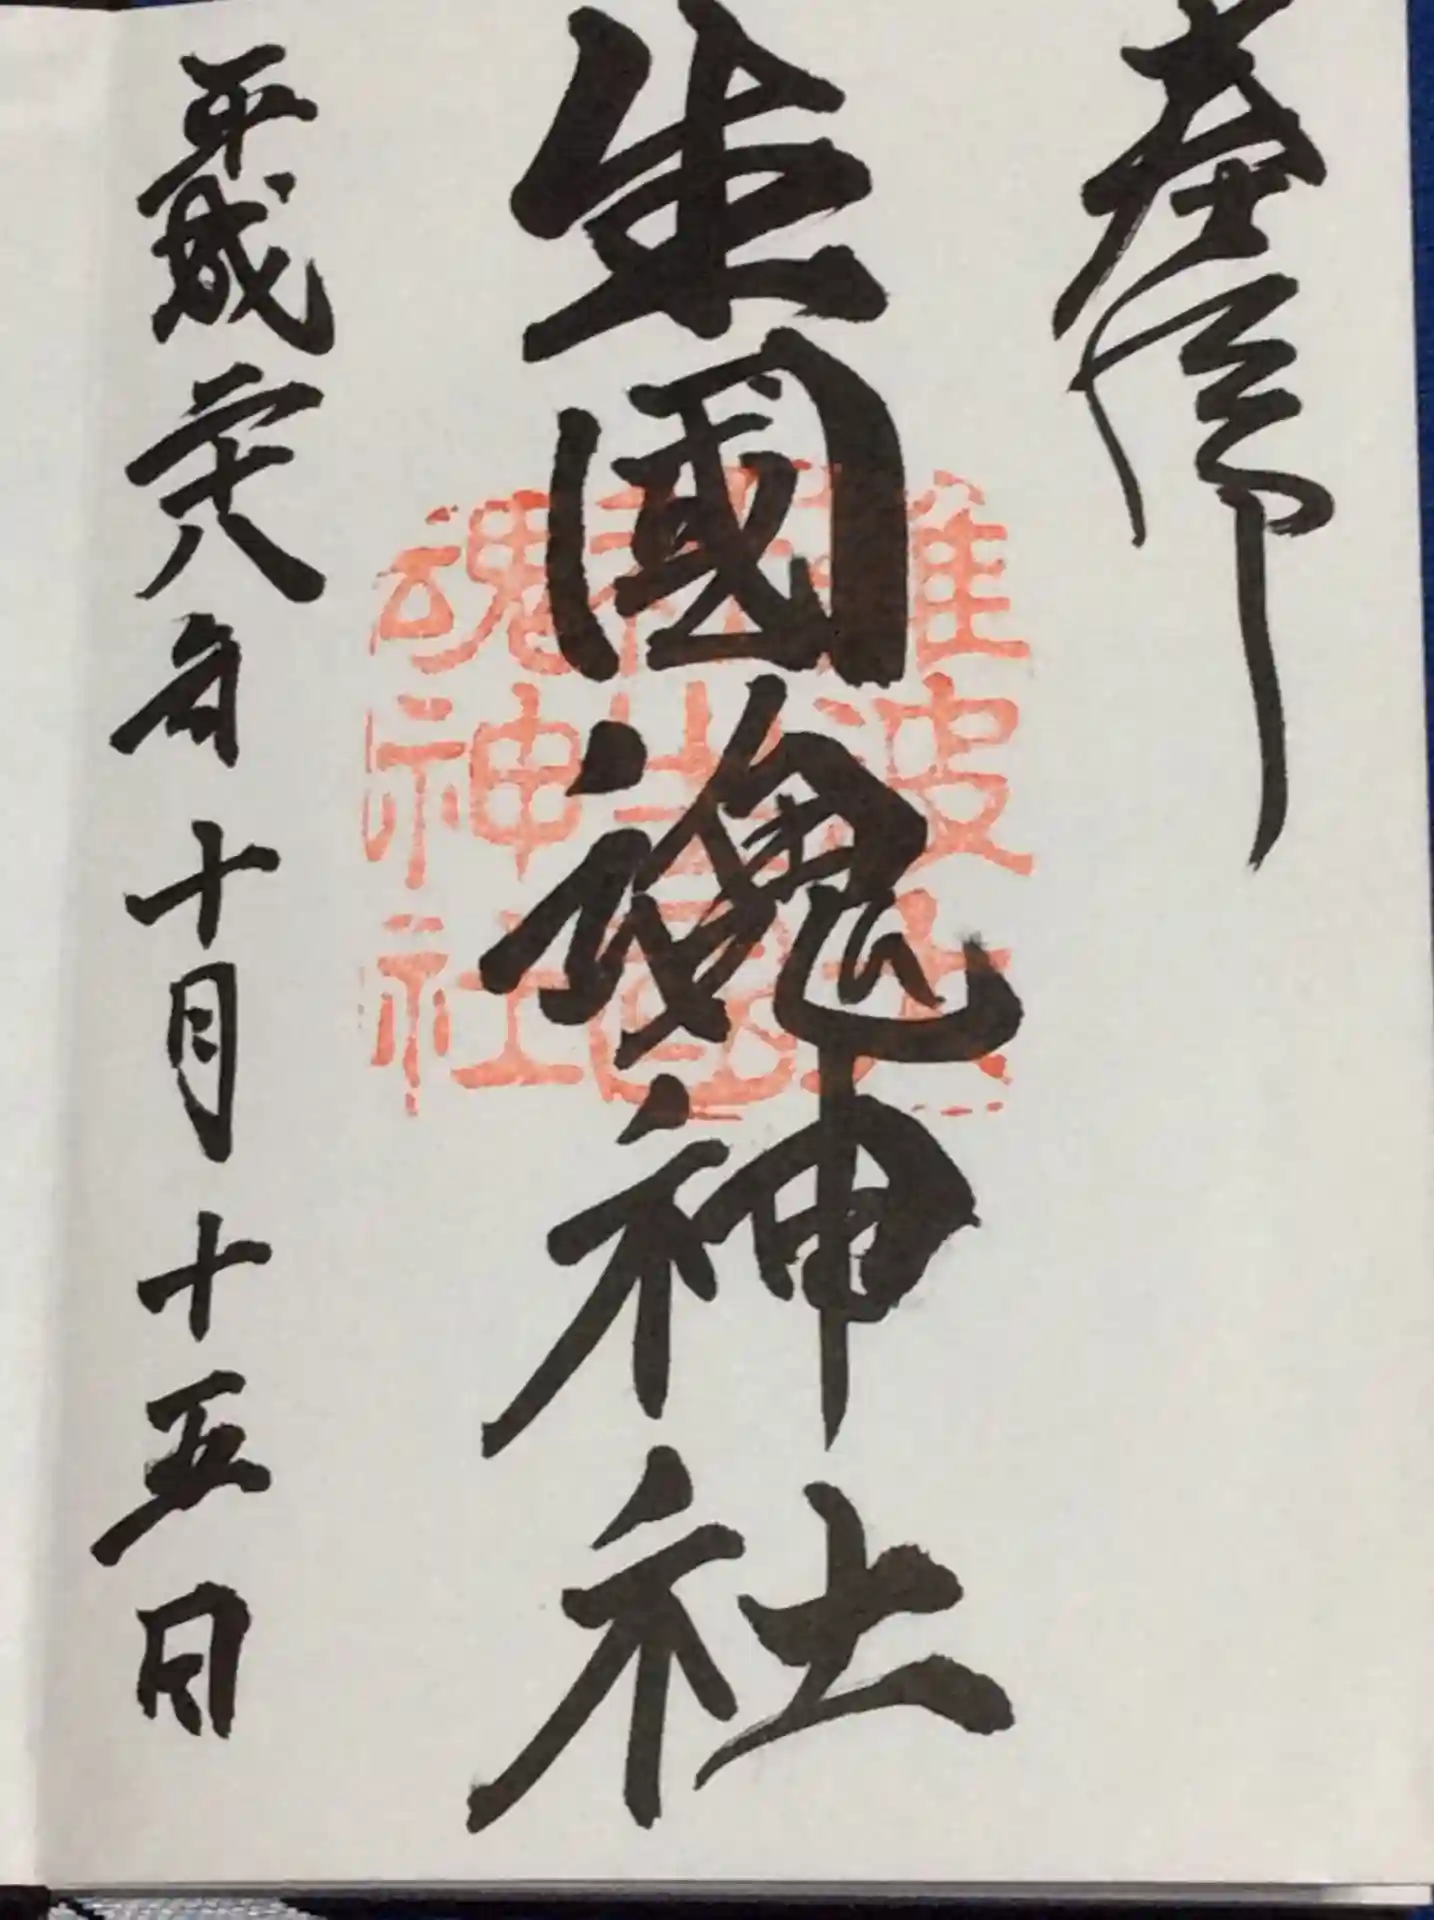 奉拝
生國魂神社
難波大
社生國
魂神社
平成廿八年十月十五日